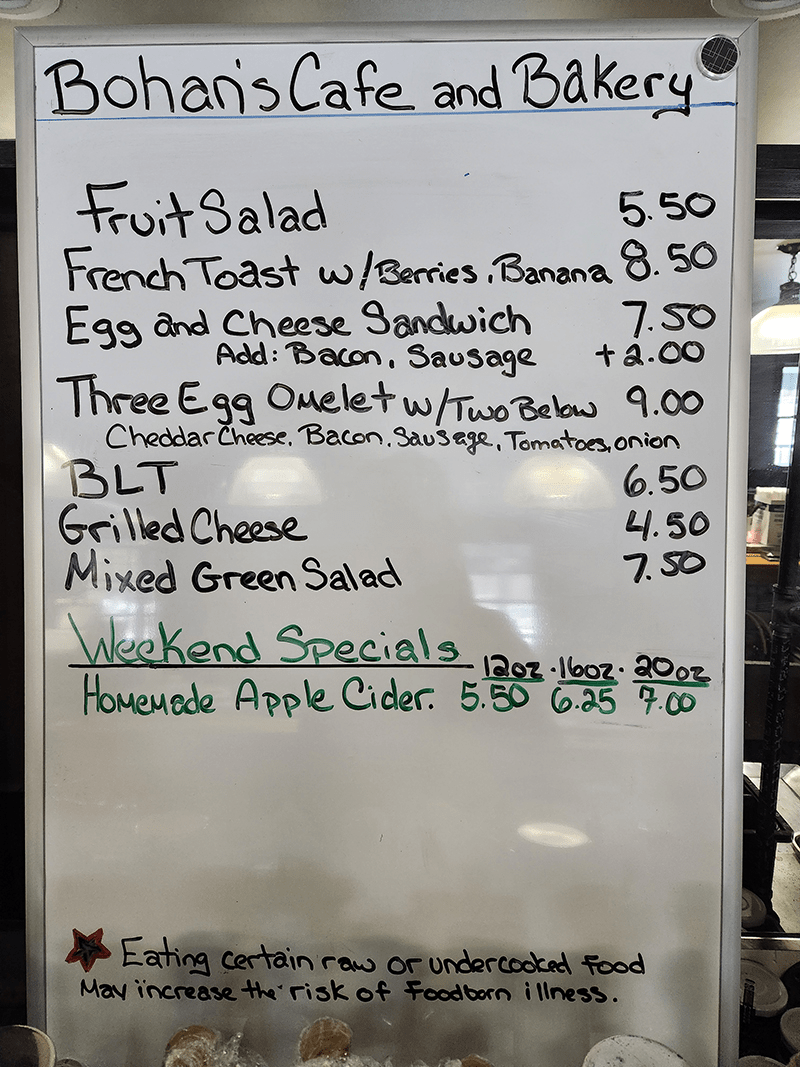 Bohan's Cafe and Bakery
Fruit Salad 5.50
French Toast w/Berries, Banana 8.50
Egg and Cheese Sandwich 7.50
Add: Bacon, Sausage +2.00
Three Egg Omelet w/Two Below 9.00
Cheddar Cheese, Bacon, Sausage, Tomatoes, onion
BLT 6.50
Grilled Cheese 4.50
Mixed Green Salad 7.50
Weekend Specials 12oz · 16oz · 20oz
Homemade Apple Cider. 5.50 6.25 7.00
Eating certain raw or undercooked food
May increase the risk of Foodborn illness.